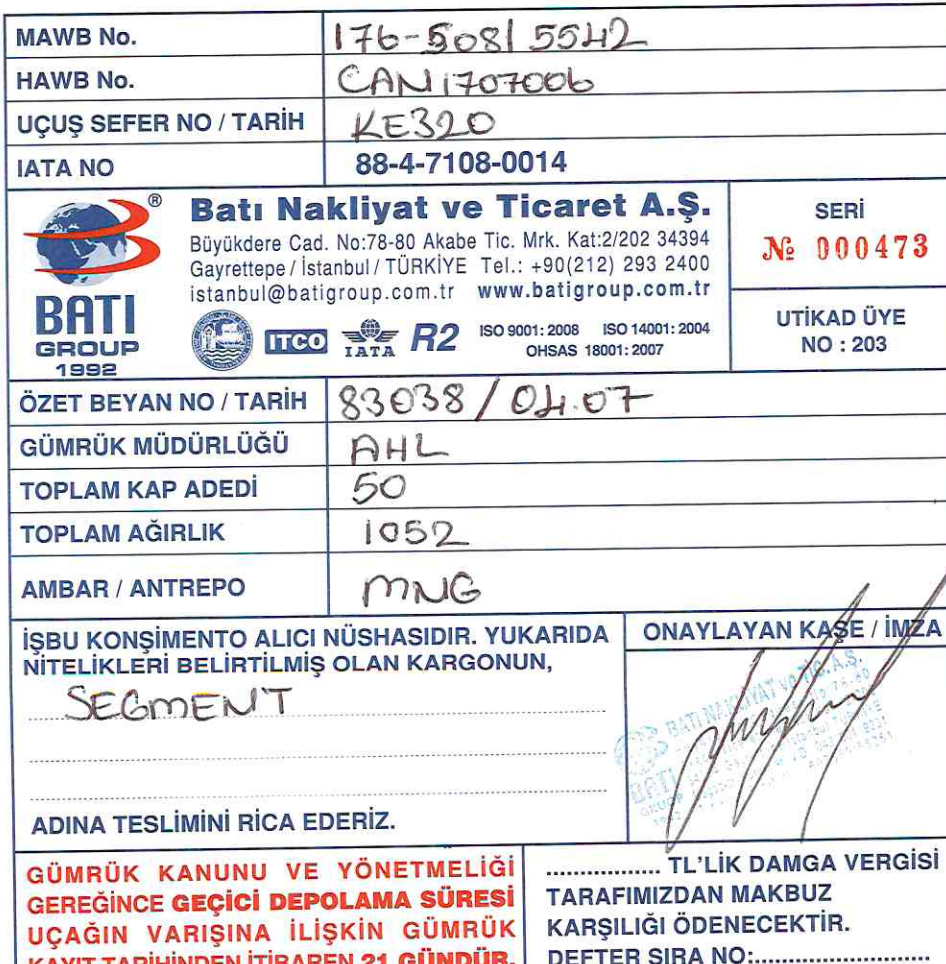 MAWB No. 176-50815542
HAWB No. CAN1707006
UÇUŞ SEFER NO / TARİH KE320
IATA NO 88-4-7108-0014
BATI
GROUP
1992
®
Batı Nakliyat ve Ticaret A.Ş.
Büyükdere Cad. No:78-80 Akabe Tic. Mrk. Kat:2/202 34394
Gayrettepe / İstanbul / TÜRKİYE Tel.: +90(212) 293 2400
istanbul@batigroup.com.tr www.batigroup.com.tr
ITCO IATA R2 ISO 9001: 2008 ISO 14001: 2004
OHSAS 18001: 2007
SERİ
№ 000473
UTİKAD ÜYE
NO : 203
ÖZET BEYAN NO / TARİH 83038 / 04.07
GÜMRÜK MÜDÜRLÜĞÜ AHL
TOPLAM KAP ADEDİ 50
TOPLAM AĞIRLIK 1052
AMBAR / ANTREPO MNG
İŞBU KONŞİMENTO ALICI NÜSHASIDIR. YUKARIDA
NİTELİKLERİ BELİRTİLMİŞ OLAN KARGONUN,
SEGMENT
ADINA TESLİMİNİ RİCA EDERİZ.
ONAYLAYAN KAŞE / İMZA
BATI NAKLİYAT ve TİC. A.Ş.
GÜMRÜK KANUNU VE YÖNETMELİĞİ
GEREĞİNCE GEÇİCİ DEPOLAMA SÜRESİ
UÇAĞIN VARIŞINA İLİŞKİN GÜMRÜK
KAYIT TARİHİNDEN İTİBAREN 21 GÜNDÜR.
................. TL'LİK DAMGA VERGİSİ
TARAFIMIZDAN MAKBUZ
KARŞILIĞI ÖDENECEKTİR.
DEFTER SIRA NO:..........................